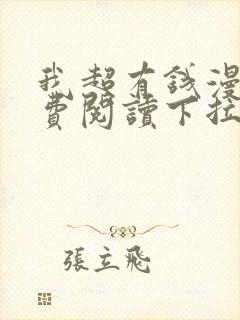 我超有錢漫
費閱讀下拉
張立飛